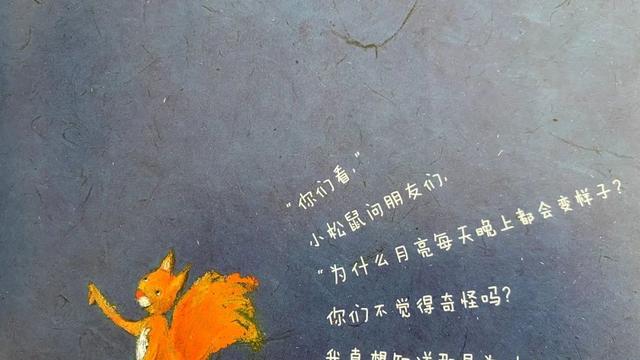 “你们看，”
小松鼠问朋友们，
“为什么月亮每天晚上都会变样子？
你们不觉得奇怪吗？
我真想知道